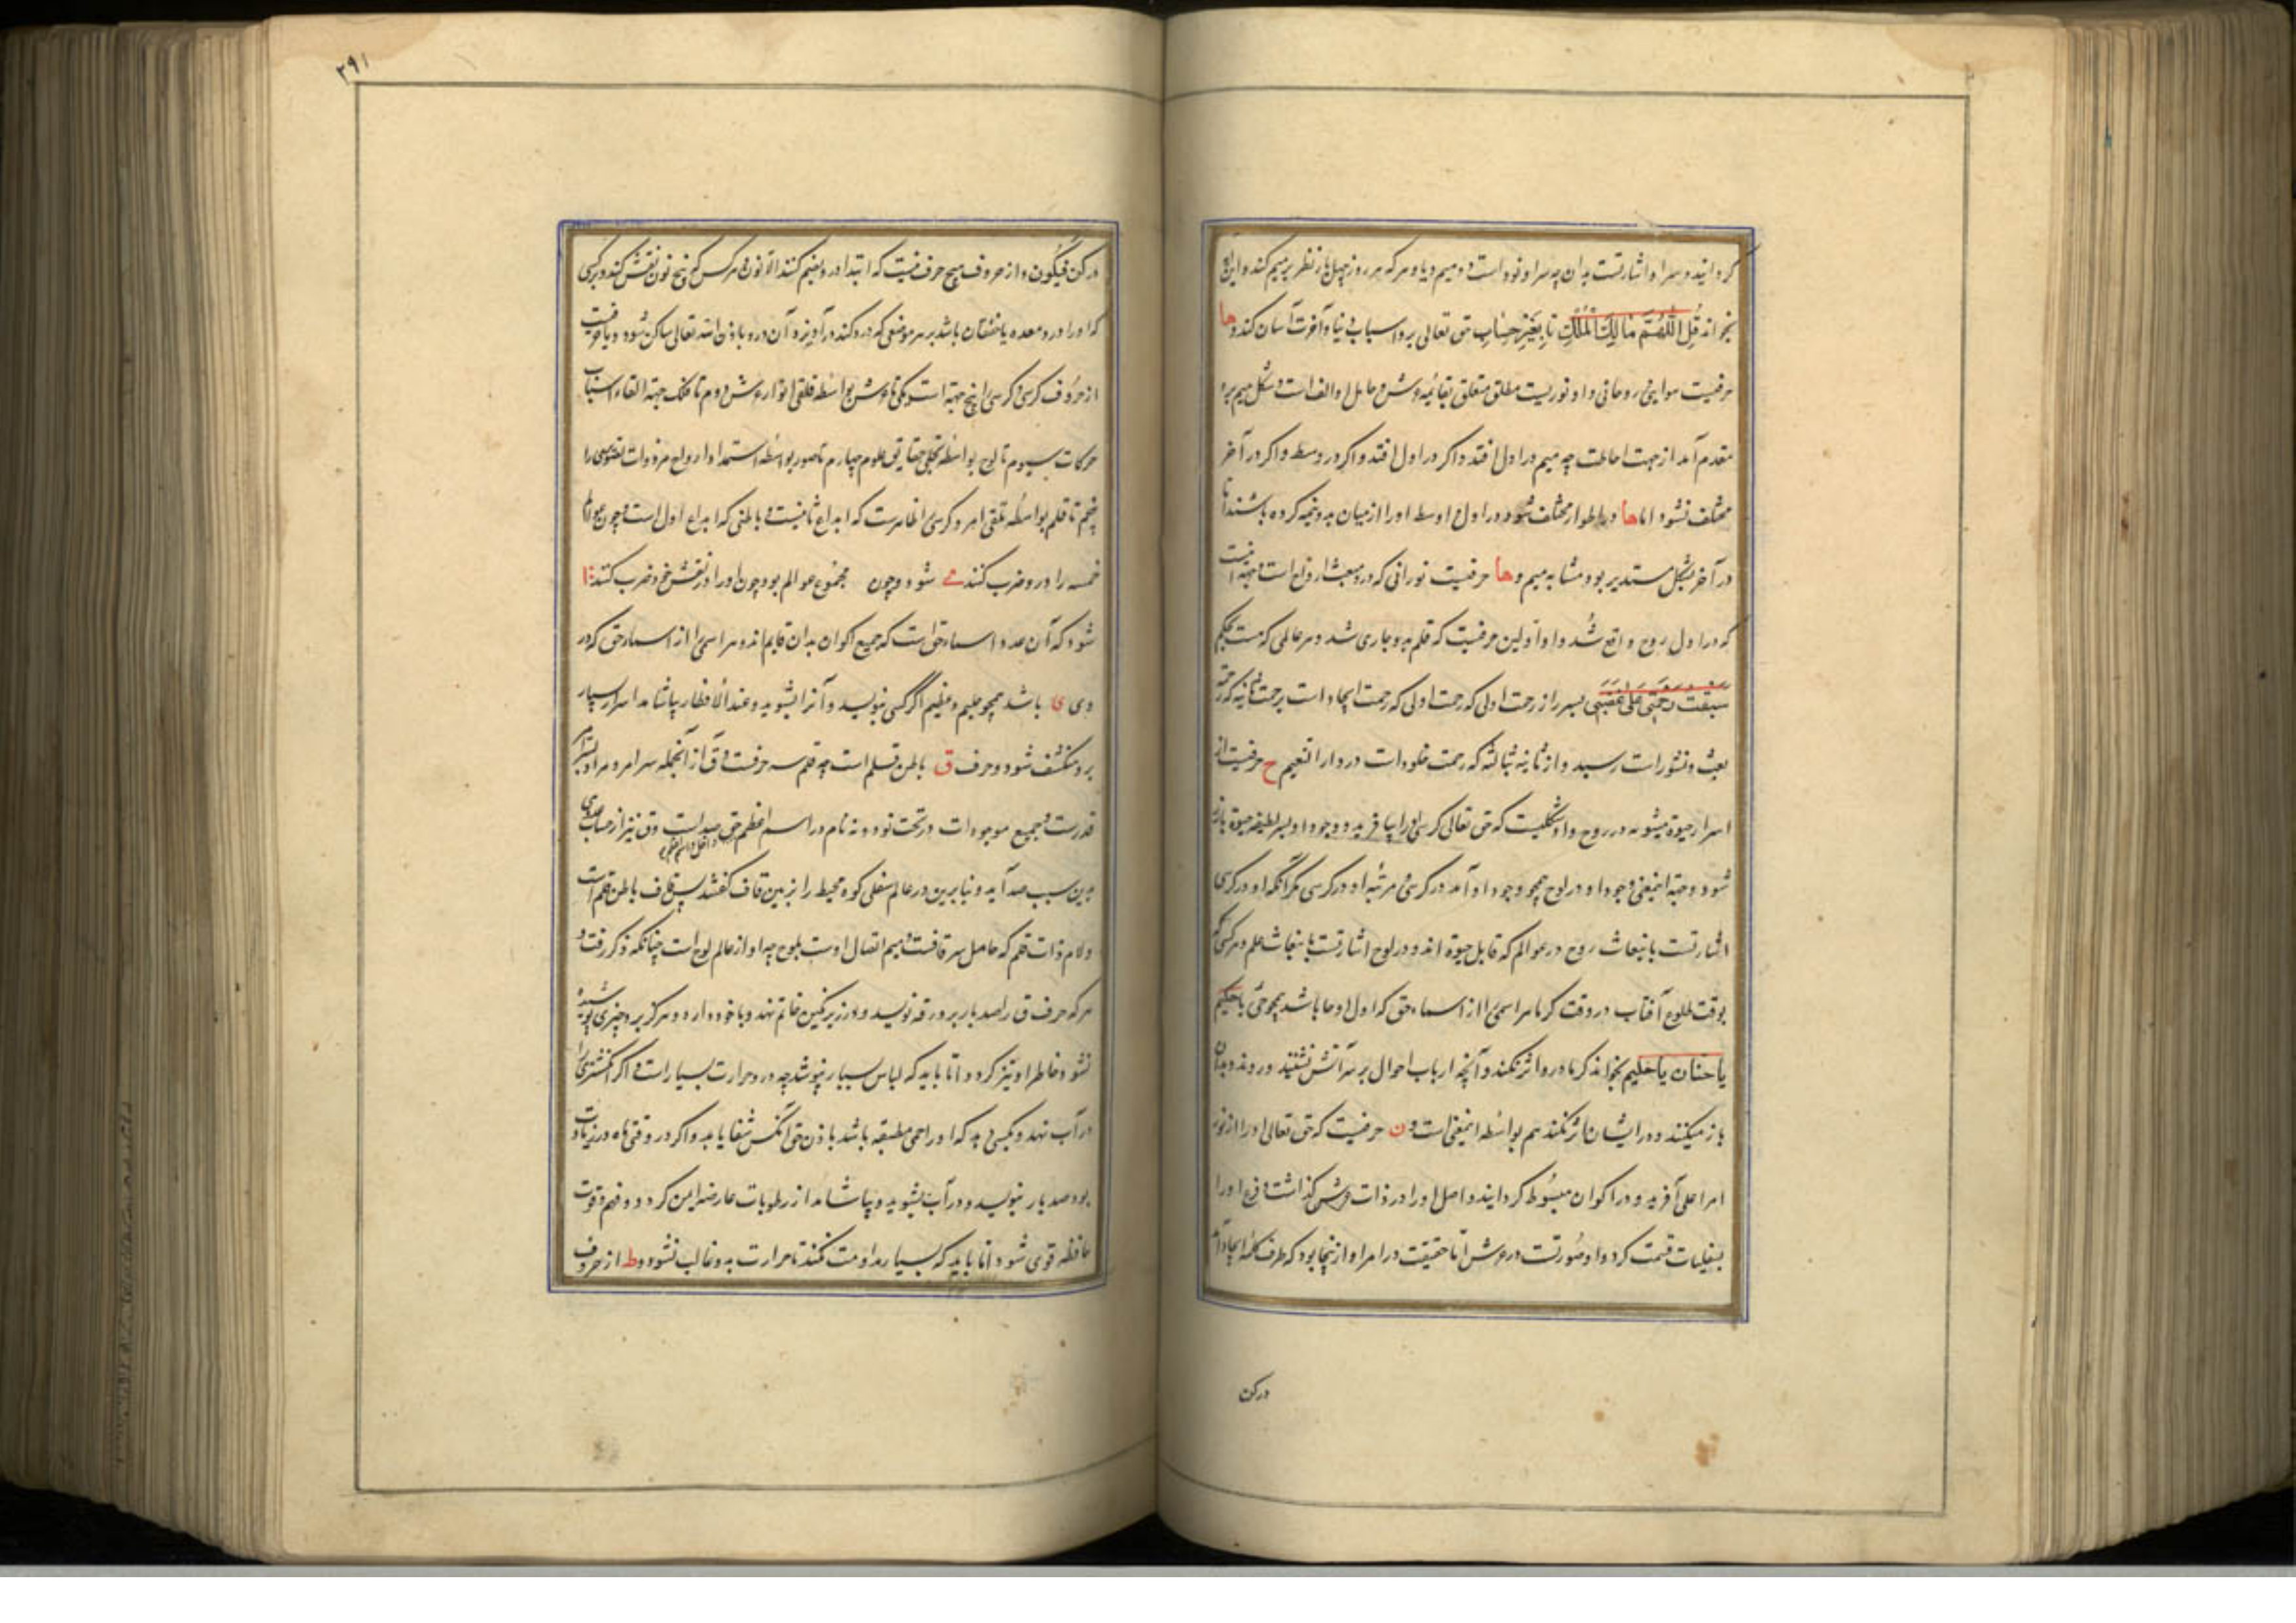 گردانید و سر او اشارتست بدان چه سر او نود است دو میم و یا و هر که هر روز چهل بار نظر بر میم کند و این آیه
بخواند قُلِ اللّٰهُمَّ مَالِكَ الْمُلْكِ تا بِغَيْرِ حِسَابٍ حق تعالی برو اسباب دنیا و آخرت آسان کند و ها
حرفیست هوایی روحانی و او نوریست مطلق متعلق بقائمه عرش و حامل او الف است و شکل میم برو
مقدم آمد از جهت احاطت چه میم در اول افتد و اگر در اول افتد و اگر در وسط و اگر در آخر
مختلف نشود اما ها در اطوار مختلف شود در اول و اوسط او را از میان بدو نیمه کرده باشند اما
در آخر بشکل مستدیر بود مشابه میم و ها حرفیست نورانی که در و مبعث ارواح است
که در اول روح واقع شد و او اولین حرفیست که قلم بدو جاری شد و هر عالمی که هست بحکم
سبقت رحمتی علی غضبی بسر راز رحمت اولی که رحمت اولی که رحمت ایجاد است برحمت ثانیه که رحمت
بعث و نشور است رسید و از ثانیه بثالثه که رحمت خلود است در دار النعیم ح حرفیست از
اسرار حیوة میشود در روح و او شکلیست که حق تعالی کرسی او را بیافرید و وجود او بسر لطیفه حیوة
شود و جهة اینمعنی وجود او در لوح همچو وجود او آمد در کرسی مرتبه او در کرسی مگر آنکه او در کرسی
اشارتست بانبعاث روح در عوالم که قابل حیوة اند و در لوح اشارتست بانبعاث علم و هر کس که
بوقت طلوع آفتاب در وقت گرما هر اسمی را از اسماء حق که اول او حا باشد همچو حی یا حکیم
یا حنان یا حلیم بخواند گرما در و اثر نکند و آنچه ارباب احوال بر سر آتش نشینند و در وند
باز میکنند و در ایشان اثر نکند هم بواسطه اینمعنی است و ن حرفیست که حق تعالی او را از نور
امر اعلی آفرید و در اکوان مبسوط گردانید و اصل او را در ذات عرش گذاشت و فرع او را
بسفلیات قسمت کرد و او صورتست در عرش اما حقیقت در امر او از ینجا بود که طرف کلمه ایجاد آمد
در کن
۲۹۱
در کن فیکون و از حروف هیچ حرف نیست که ابتدا در و بمیم کنند الا نون و هر کس که پنج نون نقش کند و بر کسی
که او را درد معده یا خفقان باشد بر هر موضعی که درد کند در آویزد آن درد باذن الله تعالی ساکن شود و یا حرفیست
از حروف کرسی و کرسی را پنج جهة است یکی تا عرش بواسطه تلقی انوار عرش دوم تا فلک جهة القاء اسباب
حرکات سیوم تا لوح بواسطه تجلی حقایق علوم چهارم تا صور بواسطه استمداد ارواح مر ذوات نفوس را
پنجم تا قلم بواسطه تلقی امر و کرسی را ظاهریست که ابداع ثانیست و باطنی که ابداع اول است و چون عوالم
خمسه را در و ضرب کنند شود و چون مجموع عوالم بود چون او را در نفسش ضرب کنند
شود که آن عدد اسماء حق است که جمیع اکوان بدان قایم اند و هر اسمی را از اسماء حق که در
وی ی باشد همچو علیم و عظیم اگر کسی بنویسد و آنرا بشوید و عند الافطار بیاشامد اسرار بسیار
برو منکشف شود و حرف ق باطن قلم است چه قلم سه حرفست و ق از آنجمله سر امر و مراد بسر امر
قدرتست و جمیع موجودات در تحت نود و نه نام در اسم اعظم حق و ق نیز از حساب صدی
بدین سبب صد آید و بنابرین در عالم سفلی کوه محیط را بزمین قاف گفتند پس قاف باطن قلم است
و لام ذات قلم که حامل سر قافست و میم اتصال اوست بلوح چه او از عالم لوح است چنانکه ذکر رفت و
هر که حرف ق را صد بار بر ورقه نویسد و در زیر نگین خاتم نهد و با خود دارد هرگز برو چیزی پوشیده
نشود و خاطر او تیز گردد اما باید که لباس سبز بپوشد چه در و حرارت بسیار است و اگر انگشتری را
در آب نهد و بکسی دهد که او را حمی مطبقه باشد باذن حق آنکس شفا یابد و اگر در وقتی ماه در زیادت
بود صد بار بنویسد و در آب بشوید و بیاشامد از رطوبات عارضه ایمن گردد و فهم و قوت
حافظه قوی شود اما باید که بسیار مداومت نکند تا حرارت بدو غالب نشود و ط از حروف